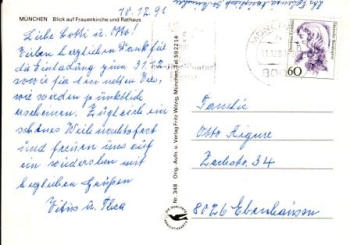 MÜNCHEN Blick auf Frauenkirche und Rathaus
18.12.91
Liebe Lotti u. Otto!
Vielen herzlichen Dank für
die Einladung zum 31.12.
sowie für den netten Vers,
wir werden pünktlich
erscheinen. Zugleich ein
schönes Weihnachtsfest
und freuen uns auf
ein wiedersehn mit
herzlichen Grüßen
Vitus u. Thea
Nr. 348 Orig. Aufn. u. Verlag Fritz Witzig, München, Tel. 592216
60
Familie
Otto Aigure
Zechstr. 34
8026 Ebenhausen